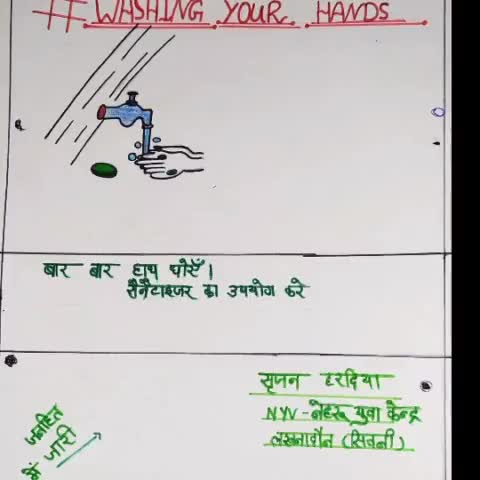 # WASHING YOUR HANDS
बार बार हाथ धोएँ।
सैनैटाइजर का उपयोग करे
सृजन हरदिया
NYV - नेहरू युवा केन्द्र
लखनादौन (सिवनी)
जनहित
में जारी